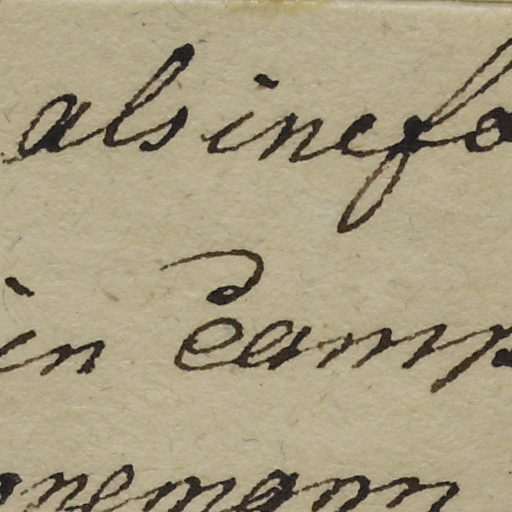 alsinefo
in Camp
nemann